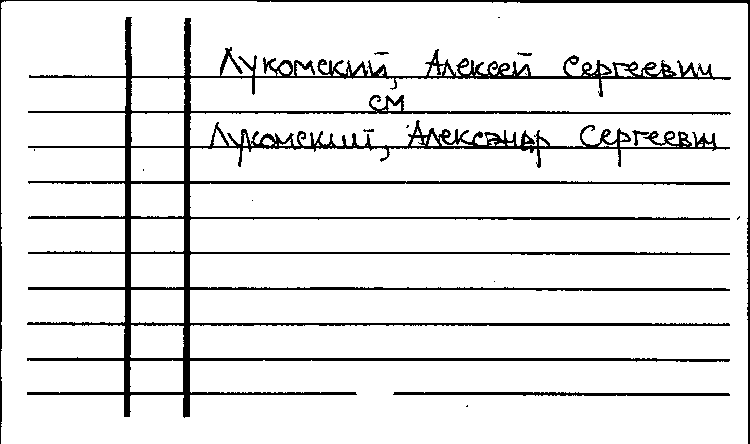 Лукомский, Алексей Сергеевич
см
Лукомский, Александр Сергеевич